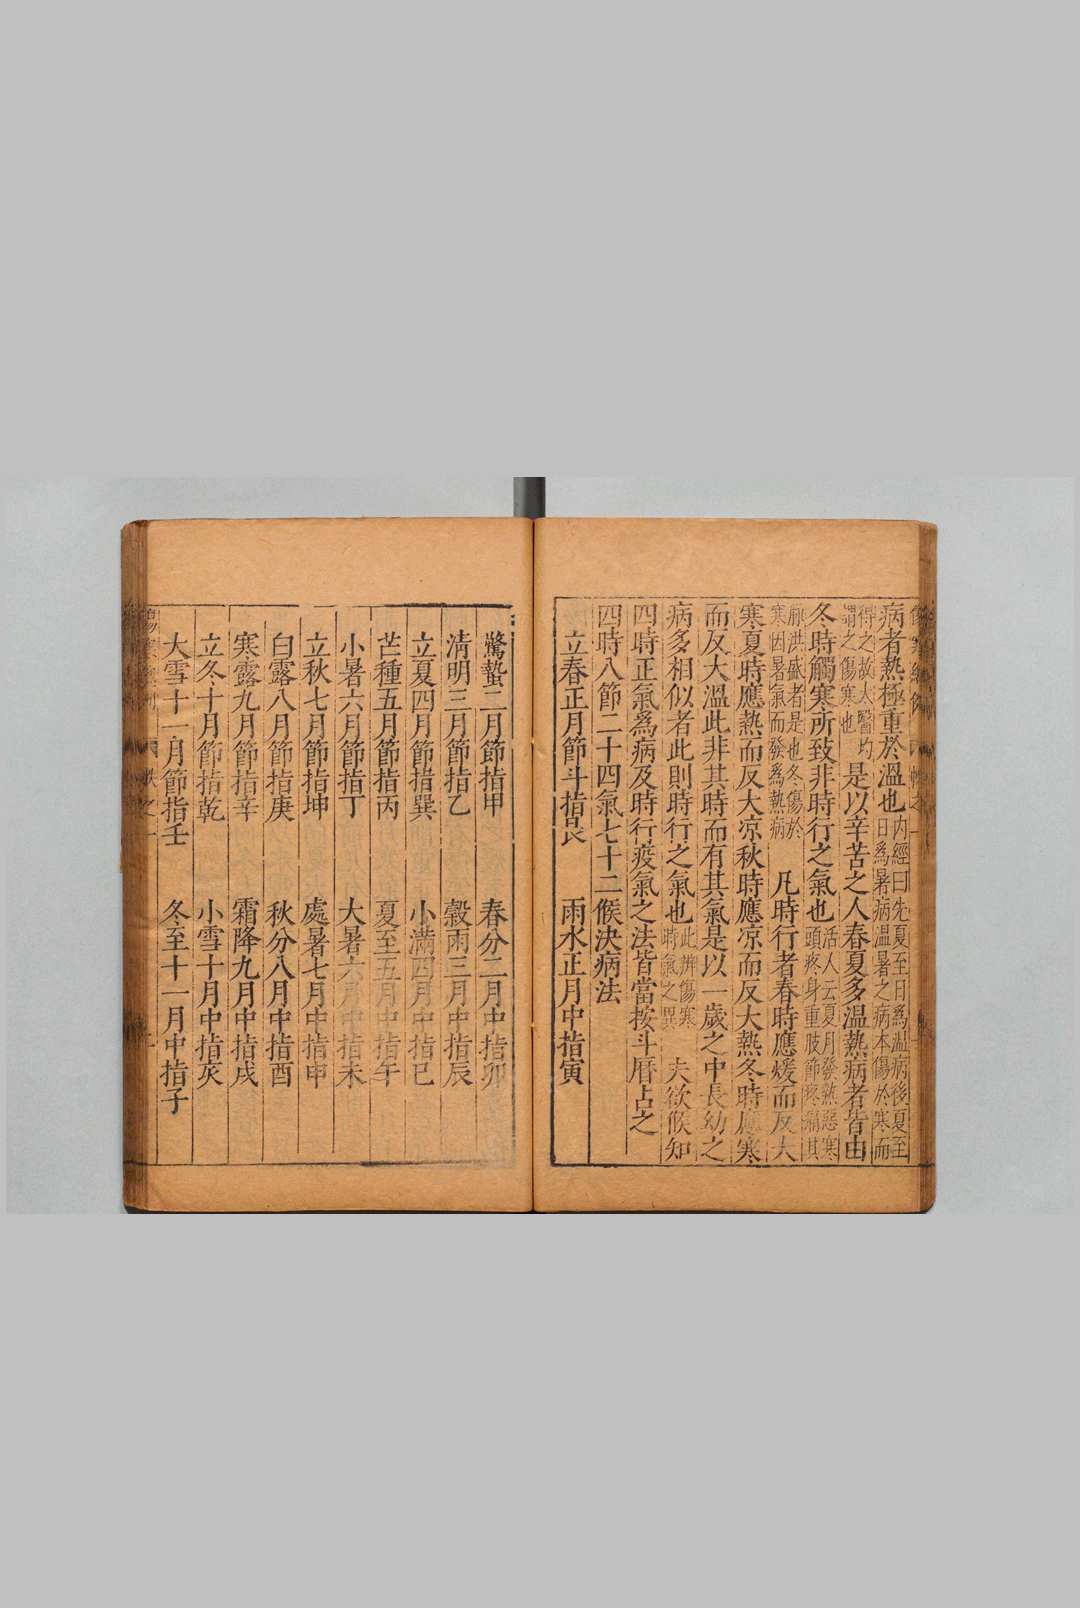 病者熱極重於溫也內經曰先夏至日爲溫病後夏至日爲暑病溫暑之病本傷於寒而
得之故大醫均謂之傷寒也是以辛苦之人春夏多溫熱病者皆由
冬時觸寒所致非時行之氣也活人云夏月發熱惡寒頭疼身重肢節疼痛其
脉洪盛者是也冬傷於寒因暑氣而發爲熱病凡時行者春時應煖而反大
寒夏時應熱而反大凉秋時應凉而反大熱冬時應寒
而反大溫此非其時而有其氣是以一歲之中長幼之
病多相似者此則時行之氣也此辨傷寒時氣之異夫欲候知
四時正氣爲病及時行疫氣之法皆當按斗曆占之
四時八節二十四氣七十二候決病法
立春正月節斗指艮 雨水正月中指寅
驚蟄二月節指甲 春分二月中指卯
清明三月節指乙 穀雨三月中指辰
立夏四月節指巽 小滿四月中指巳
芒種五月節指丙 夏至五月中指午
小暑六月節指丁 大暑六月中指未
立秋七月節指坤 處暑七月中指申
白露八月節指庚 秋分八月中指酉
寒露九月節指辛 霜降九月中指戌
立冬十月節指乾 小雪十月中指亥
大雪十一月節指壬 冬至十一月中指子